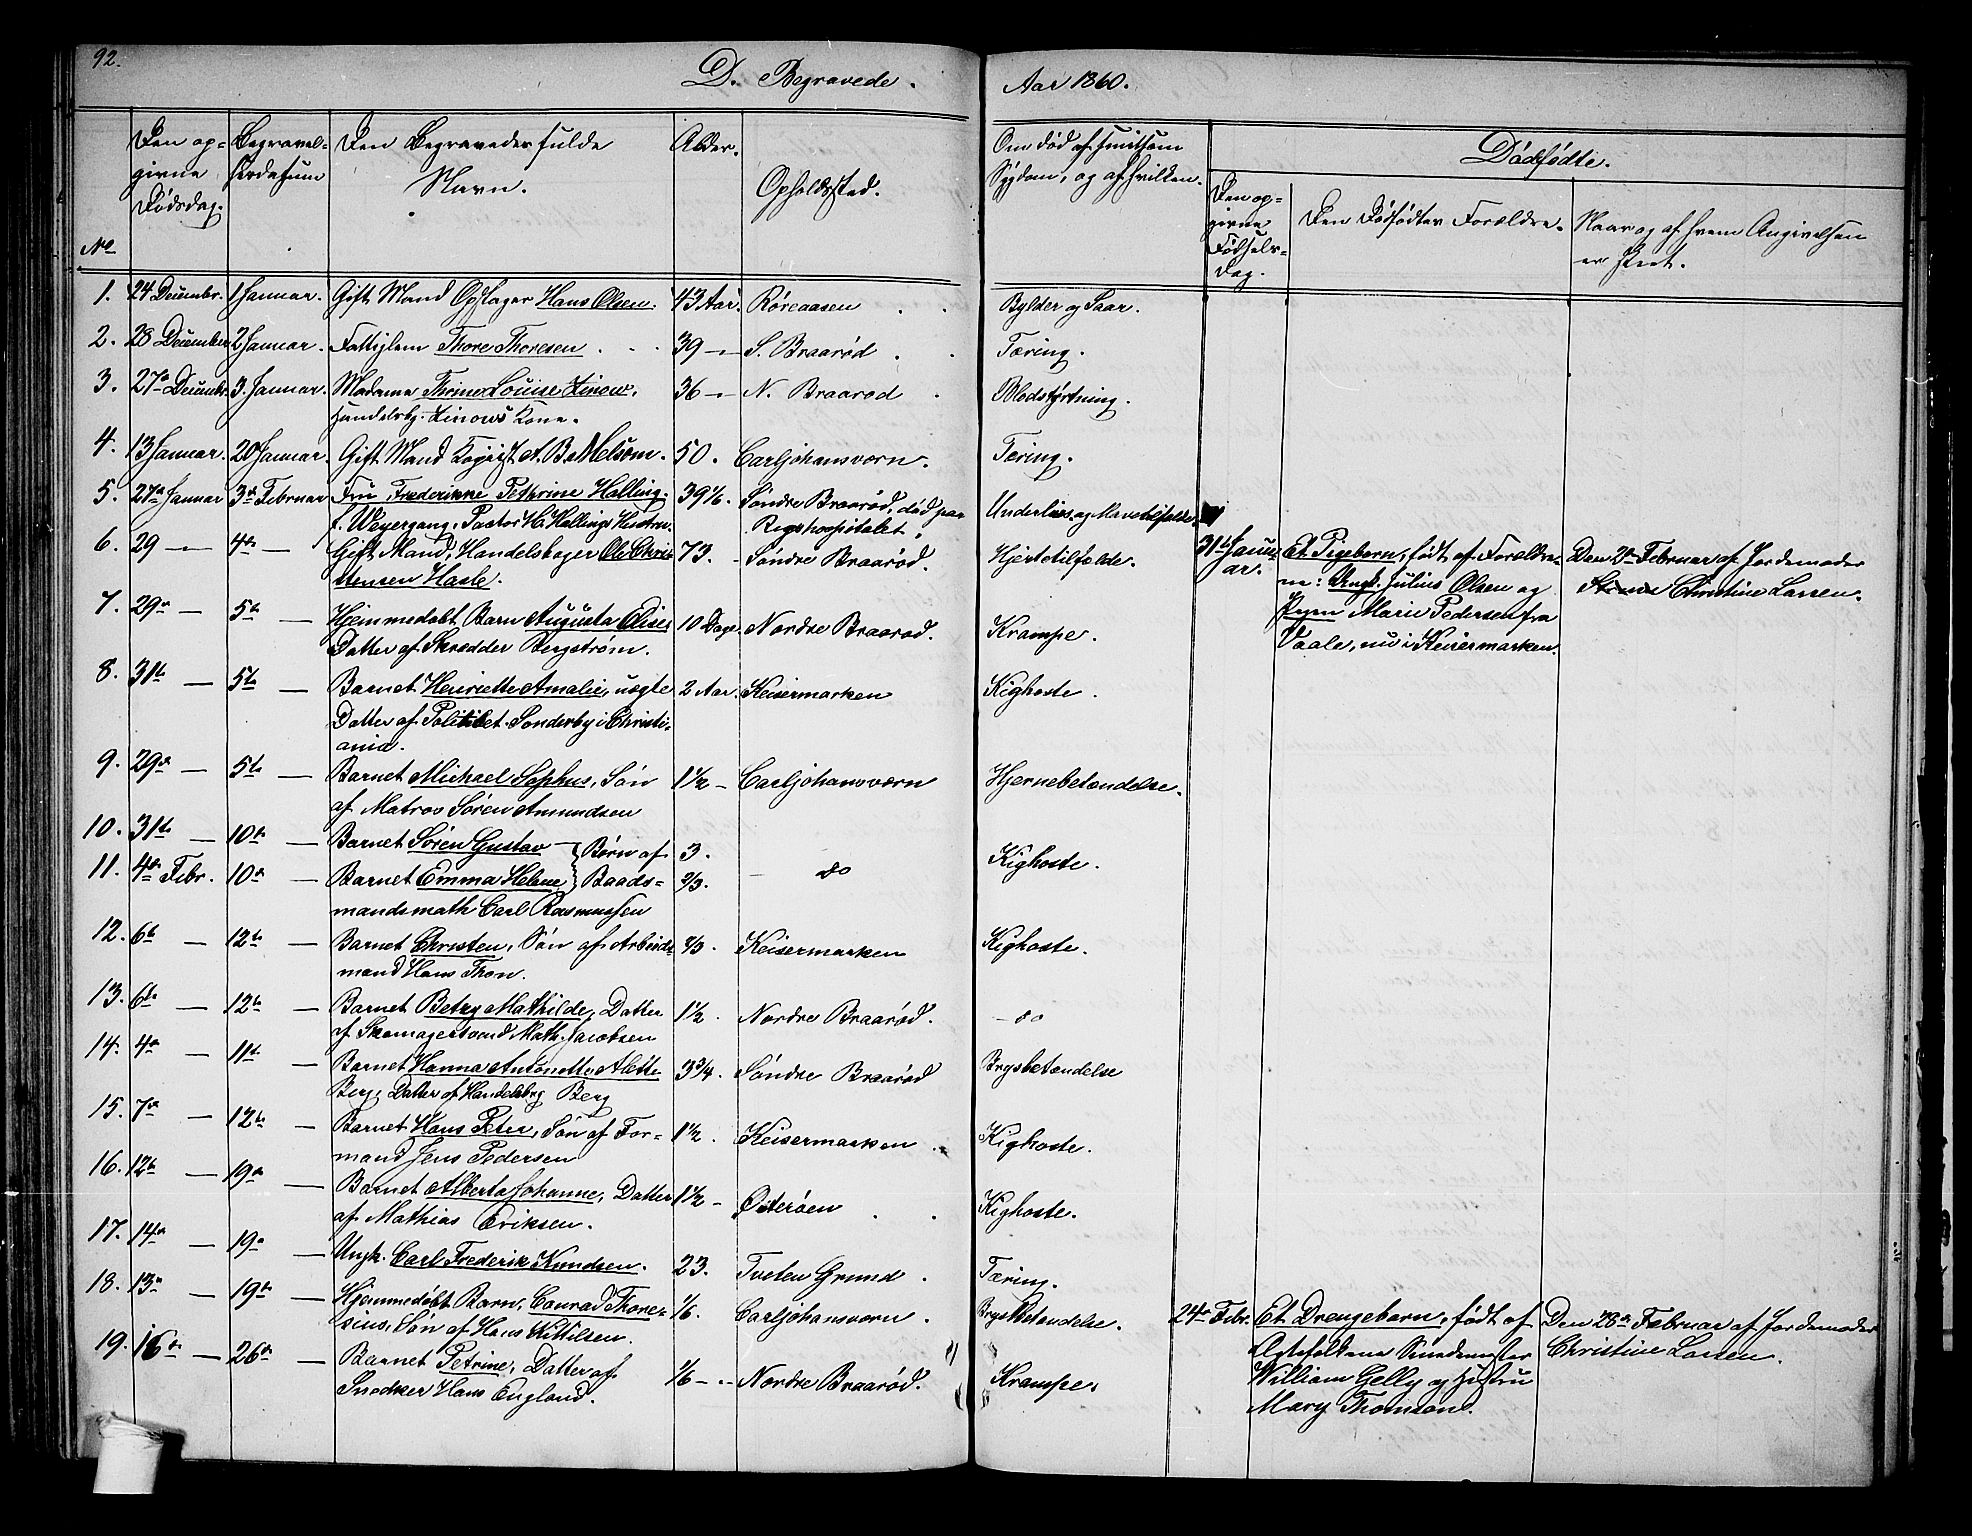 92.
D. Begravede.
Aar 1860.
No
Den op-
givne
Dødsdag.
Begravel-
sesdatum
Den Begravedes fulde
Navn.
Alder.
Opholdssted.
Om død af smitsom
Sygdom, og af hvilken.
Dødfødte.
Den op-
givne
Fødsels-
dag.
Den Dødfødtes Forældre.
Naar og af hvem Angivelsen
er skeet.
1. 24 Decembr. 1 Januar. Gift Mand Opsager Hans Olsen. 43 Aar. Røreaasen Bylder og Saar.
2. 28 December 2 Januar. Fattiglem Thore Thoresen 39 — S. Braarød Tæring.
3. 27de Decembr. 3. Januar. Madame Thrine Louise Linow, 36 — N. Braarød Blodstyrtning.
Handelsbg. Linows Kone.
4. 13 Januar. 20 Januar. Gift Mand A. B. Melsom. 50. Carljohansværn. Tæring.
5. 27de Januar 3de Februar Fru Frederikke Pethrine Halling, 39 1/6. Søndre Braarød, død paa Underlivs og Mavetilfælde.
f. Weyergang, Pastor H. Hallings Hustru. Rigshospitalet.
6. 29 — 4de — Gift Mand, Handelsbager Ole Chris- 73. Søndre Braarød. Hjertetilfælde.
tensen Hasle.
31te Janu-
ar.
Et Pigebarn, født af Forældre-
ne: Ungk. Julius Olsen og
Pigen Marie Pedersen fra
Vaale, nu i Keisermarken.
Den 2den Februar af Jordemoder
Christine Larsen.
7. 29de — 5te — Hjemmedøbt Barn Augusta Elise, 10 Dage. Nordre Braarød. Krampe.
Datter af Skrædder Bergstrøm.
8. 31te — 5te — Barnet Henriette Amalie, uægte 2 Aar. Keisermarken Kighoste.
Datter af Politibet. Sønderby i Christi-
ania.
9. 29de — 5te — Barnet Michael Sophus, Søn 1 1/2 — Carljohansværn Hjernebetændelse.
af Matros Søren Amundsen
10. 31te — 10de — Barnet Søren Gustav Børn af 3.
11. 4de Febr. 10de — Barnet Emma Helene Baads- 2/3. — do Kighoste.
mandsmath Carl Rasmussen
12. 6te — 12te — Barnet Christen, Søn af Arbeids- 2/3. Keisermarken Kighoste.
mand Hans Thon.
13. 6te — 12te — Barnet Betzy Mathilde, Datter 1 1/2. Nordre Braarød. — do
af Skomagersvend Math. Jacobsen
14. 4de — 11te — Barnet Hanna Antonette Alette 3 3/4. Søndre Braarød Brystbetændelse
Berg, Datter af Handelsbrg Berg
15. 7de — 12te — Barnet Hans Peter, Søn af For- 1 1/2. Keisermarken. Kighoste.
mand Jens Pedersen
16. 12te — 19de — Barnet Alberta Johanne, Datter 1 1/2 — Østerøen Kighoste.
af Mathias Eriksen.
17. 14de — 19de — Ungk. Carl Frederik Knudsen. 23. Tveten Grund. Tæring.
18. 13de — 19de — Hjemmedøbt Barn, Conrad Thore- 1/6. Carljohansværn. Brystbetændelse.
sius, Søn af Hans Kittilsen.
19. 16de — 26de — Barnet Petrine, Datter af 1/6 — Nordre Braarød. Krampe.
Snedker Hans England.
24de Febr. Et Drengebarn, født af
Ægtefolkene Smedemester
William Gelly og Hustru
Mary Thomson.
Den 28de Februar af Jordemoder
Christine Larsen.